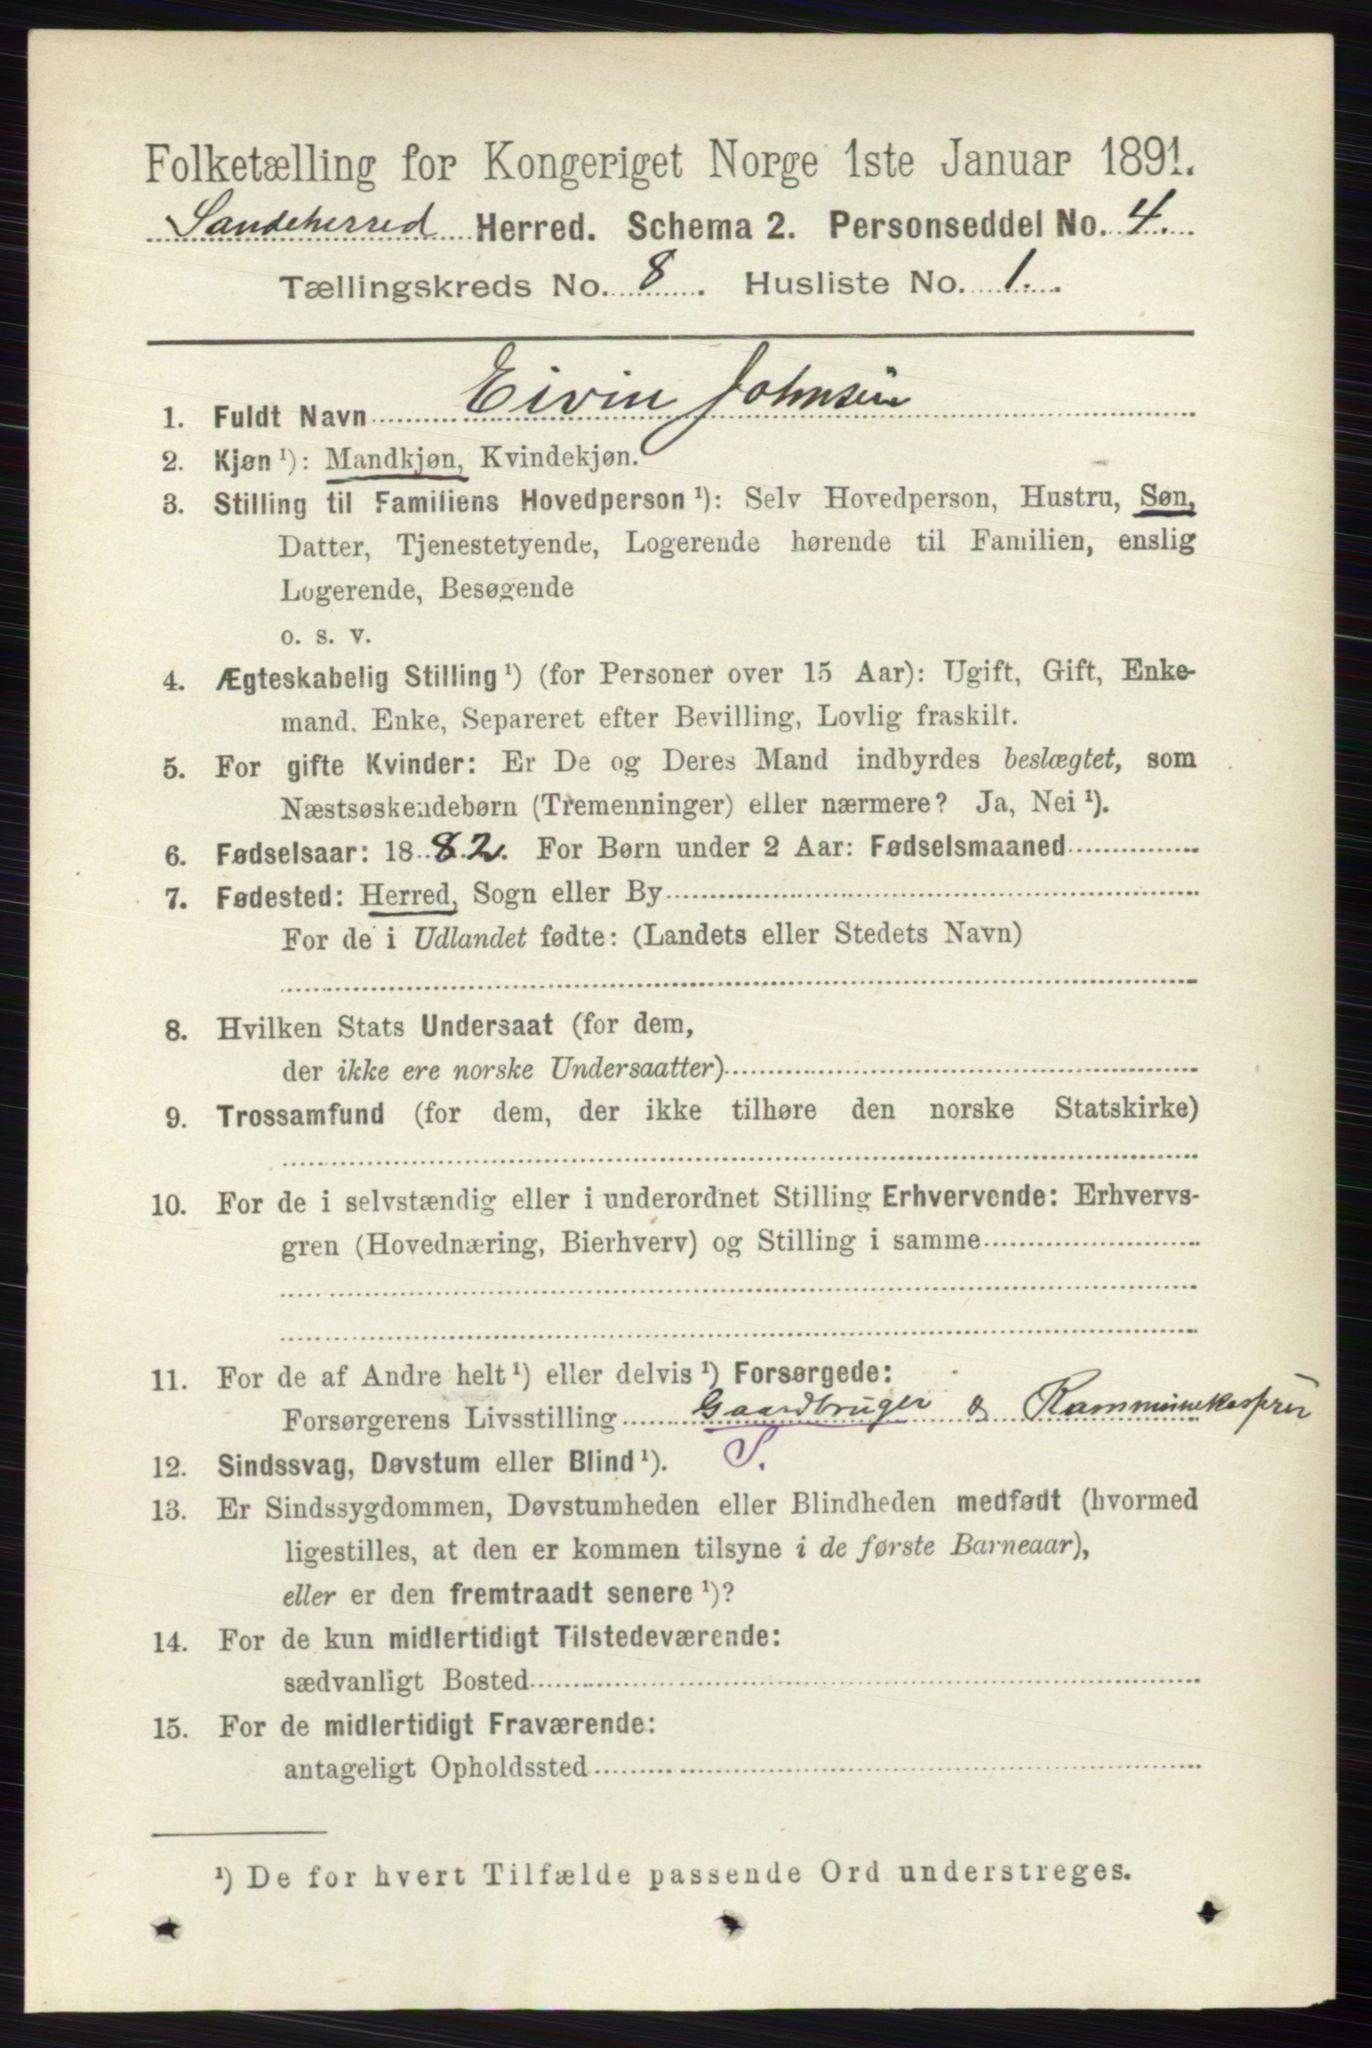 Folketælling for Kongeriget Norge 1ste Januar 1891.
Sandeherred Herred. Schema 2. Personseddel No. 4.
Tællingskreds No. 8. Husliste No. 1.
1. Fuldt Navn Eivin Johnsen
2. Kjøn ¹): Mandkjøn, Kvindekjøn.
3. Stilling til Familiens Hovedperson ¹): Selv Hovedperson, Hustru, Søn,
Datter, Tjenestetyende, Logerende hørende til Familien, enslig
Logerende, Besøgende
o. s. v.
4. Ægteskabelig Stilling ¹) (for Personer over 15 Aar): Ugift, Gift, Enke-
mand, Enke, Separeret efter Bevilling, Lovlig fraskilt.
5. For gifte Kvinder: Er De og Deres Mand indbyrdes beslægtet, som
Næstsøskendebørn (Tremenninger) eller nærmere? Ja, Nei ¹).
6. Fødselsaar: 1882. For Børn under 2 Aar: Fødselsmaaned
7. Fødested: Herred, Sogn eller By
For de i Udlandet fødte: (Landets eller Stedets Navn)
8. Hvilken Stats Undersaat (for dem,
der ikke ere norske Undersaatter)
9. Trossamfund (for dem, der ikke tilhøre den norske Statskirke)
10. For de i selvstændig eller i underordnet Stilling Erhvervende: Erhvervs-
gren (Hovednæring, Bierhverv) og Stilling i samme
11. For de af Andre helt ¹) eller delvis ¹) Forsørgede:
Forsørgerens Livsstilling Gaardbruger &
12. Sindssvag, Døvstum eller Blind ¹). S.
13. Er Sindssygdommen, Døvstumheden eller Blindheden medfødt (hvormed
ligestilles, at den er kommen tilsyne i de første Barneaar),
eller er den fremtraadt senere ¹)?
14. For de kun midlertidigt Tilstedeværende:
sædvanligt Bosted
15. For de midlertidigt Fraværende:
antageligt Opholdssted
¹) De for hvert Tilfælde passende Ord understreges.